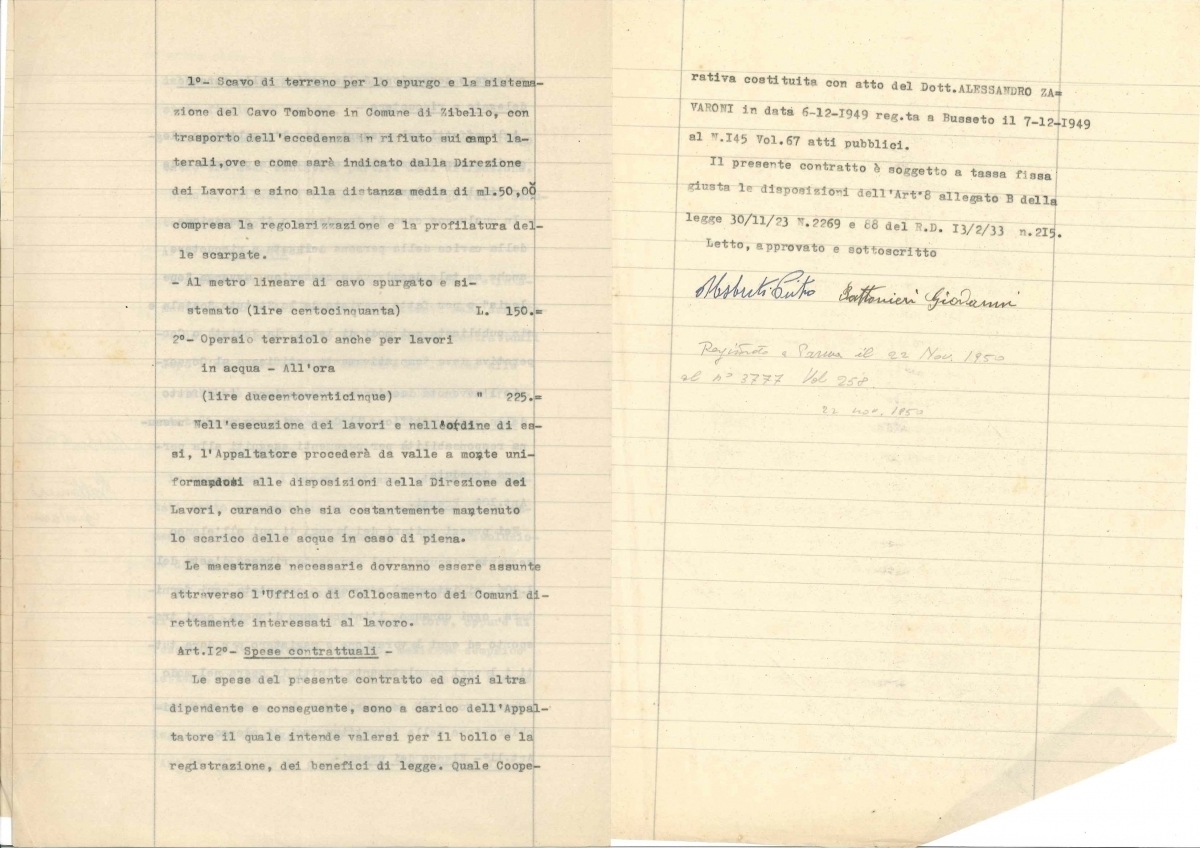 1º- Scavo di terreno per lo spurgo e la sistema-
zione del Cavo Tombone in Comune di Zibello, con
trasporto dell'eccedenza in rifiuto sui campi la-
terali,ove e come sarà indicato dalla Direzione
dei Lavori e sino alla distanza media di ml.50,00
compresa la regolarizzazione e la profilatura del-
le scarpate.
- Al metro lineare di cavo spurgato e si-
stemato (lire centocinquanta) L. 150.=
2º- Operaio terraiolo anche per lavori
in acqua - All'ora
(lire duecentoventicinque) " 225.=
Nell'esecuzione dei lavori e nell'ordine di es-
si, l'Appaltatore procederà da valle a monte uni-
formandosi alle disposizioni della Direzione dei
Lavori, curando che sia costantemente mantenuto
lo scarico delle acque in caso di piena.
Le maestranze necessarie dovranno essere assunte
attraverso l'Ufficio di Collocamento dei Comuni di-
rettamente interessati al lavoro.
Art.I2º- Spese contrattuali -
Le spese del presente contratto ed ogni altra
dipendente e conseguente, sono a carico dell'Appal-
tatore il quale intende valersi per il bollo e la
registrazione, dei benefici di legge. Quale Coope-
rativa costituita con atto del Dott.ALESSANDRO ZA=
VARONI in data 6-12-1949 reg.ta a Busseto il 7-12-1949
al N.I45 Vol.67 atti pubblici.
Il presente contratto è soggetto a tassa fissa
giusta le disposizioni dell'Art°8 allegato B della
legge 30/11/23 N.2269 e 88 del R.D. I3/2/33 n.2I5.
Letto, approvato e sottoscritto
Giovanni
Registrato a Parma il 22 Nov. 1950
al nº 3777 Vol 258.
22 nov. 1950